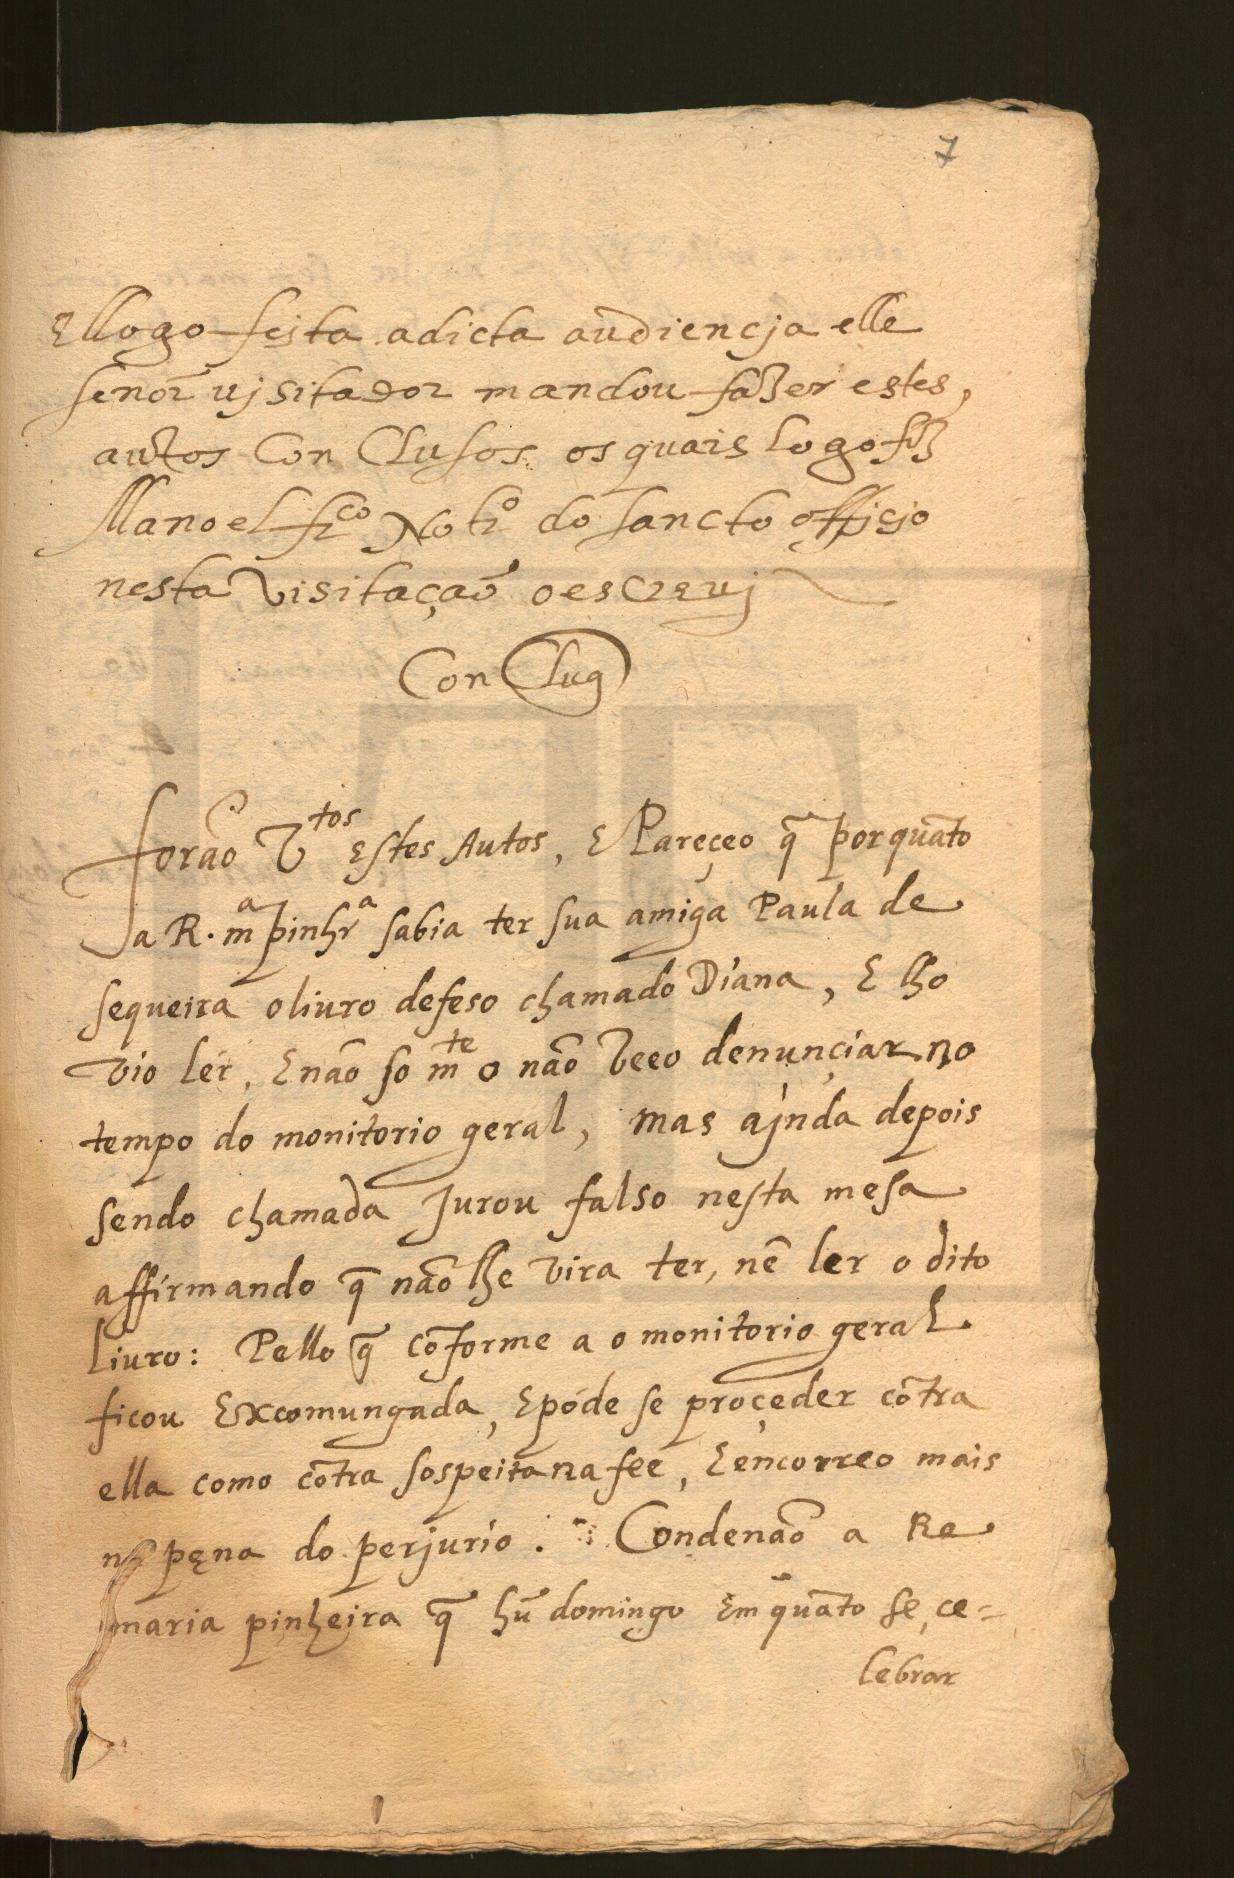 7
E llogo feita a dicta audiencja elle
senor vjsitador mandou fazer estes,
autos Conclusos os quais logo fiz
Manoel frco Notro do sancto offiçio
nesta visitação o escrevj
Conclus
forão vtos Estes Autos, E Pareçeo q̃ porquãto
a R. ma pinhra sabia ter sua amiga Paula de
sequeira o liuro defeso chamado Diana, E lho
vio lér, E não somte o não veeo denunçiar no
tempo do monitorio geral, mas ajnda depois
sendo chamada Jurou falso nesta mesa
affirmando q̃ não lhe vira ter, nẽ ler o dito
liuro: Pello q̃ cõforme a o monitorio geral
ficou Excomungada, E póde se proçeder cõtra
ella como cõtra sospeita na fee, E encorreo mais
na pena do perjurio. Condenão a Re
maria pinheira q̃ hũ domingo Em quãto se ce=
lebrar